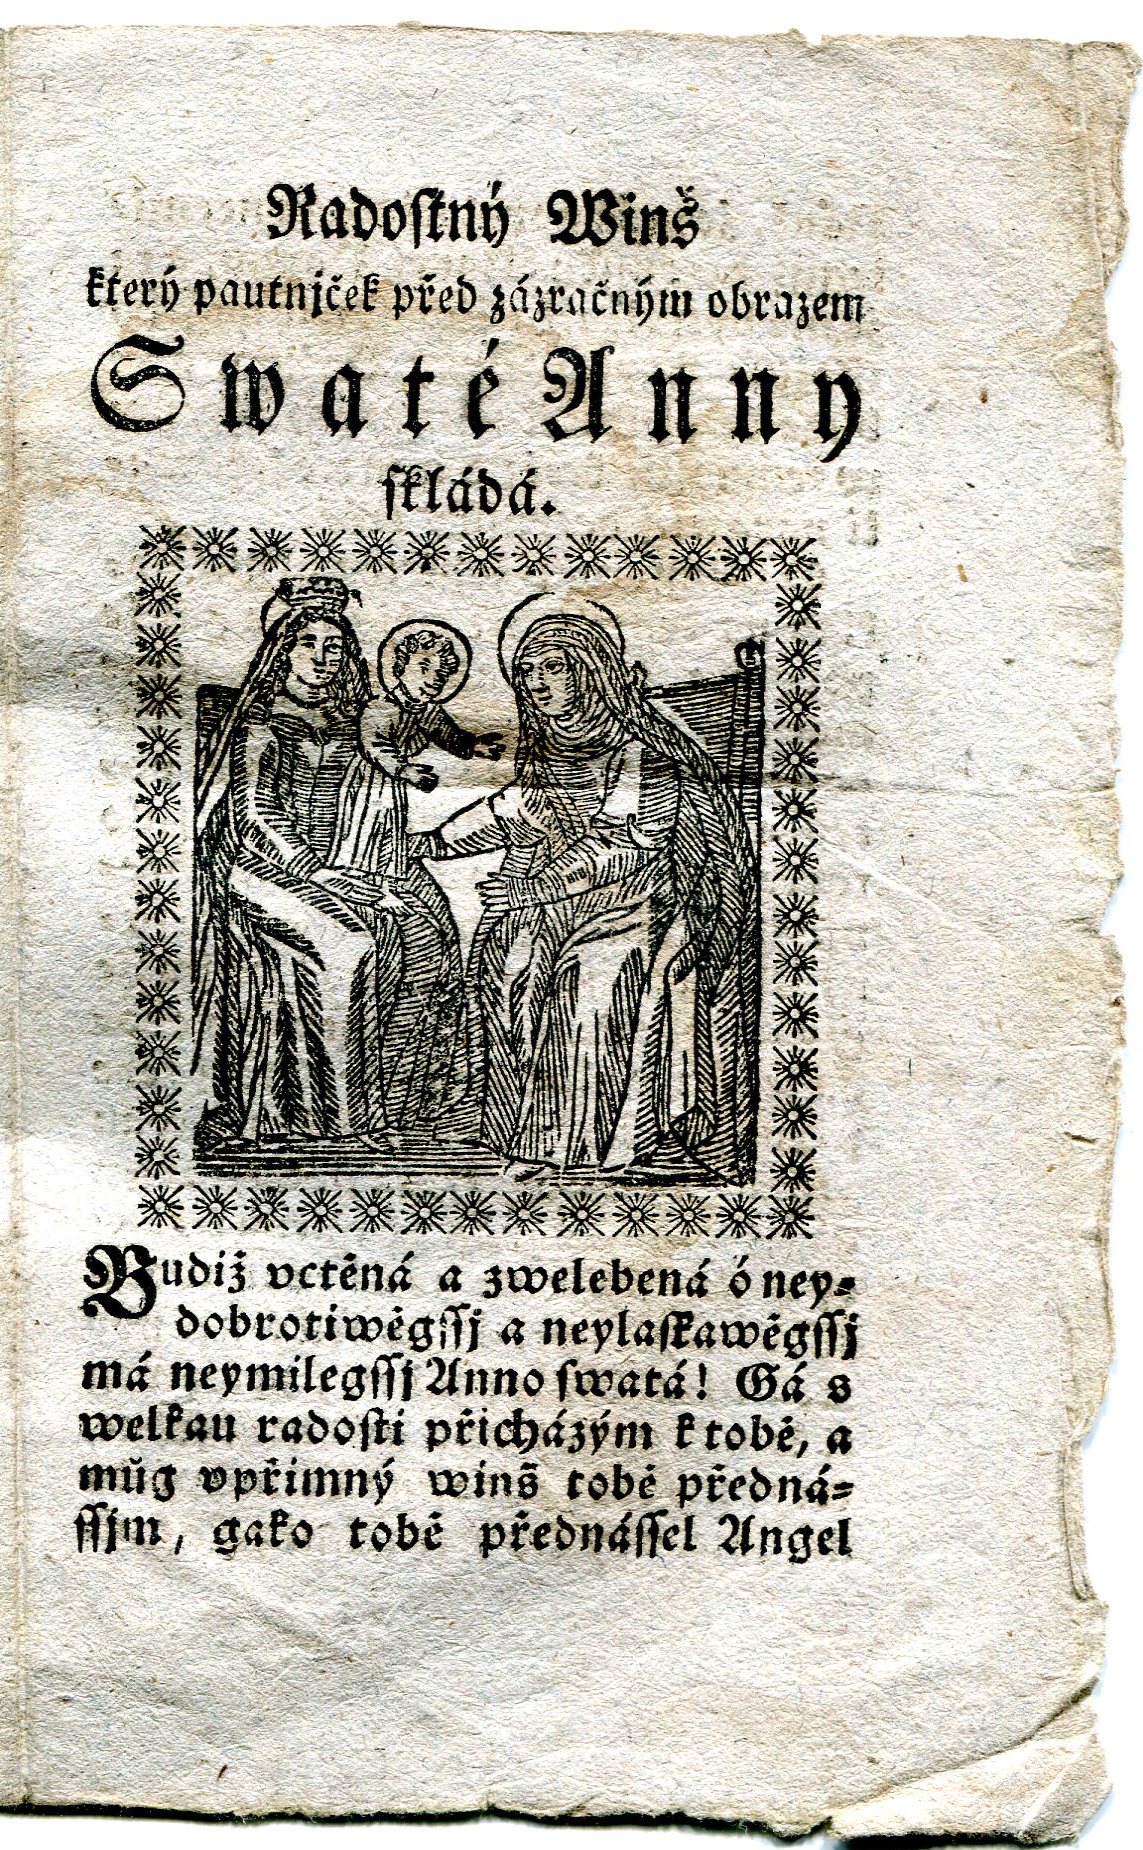 Radoſtný Winš
který pautnjček před zázračným obrazem
Swaté Anny
ſkládá.
Budiž vctěná a zwelebená ó ney⸗
dobrotiwěgſſj a neylaſkawěgſſj
má neymilegſſj Anno ſwatá! Gá s
welkau radoſti přicházým k tobě, a
můg vpřimný winš tobě předná⸗
ſſjm, gako tobě přednáſſel Angel